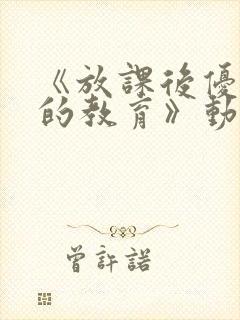 《放課後優
的教育》動
曾許諾